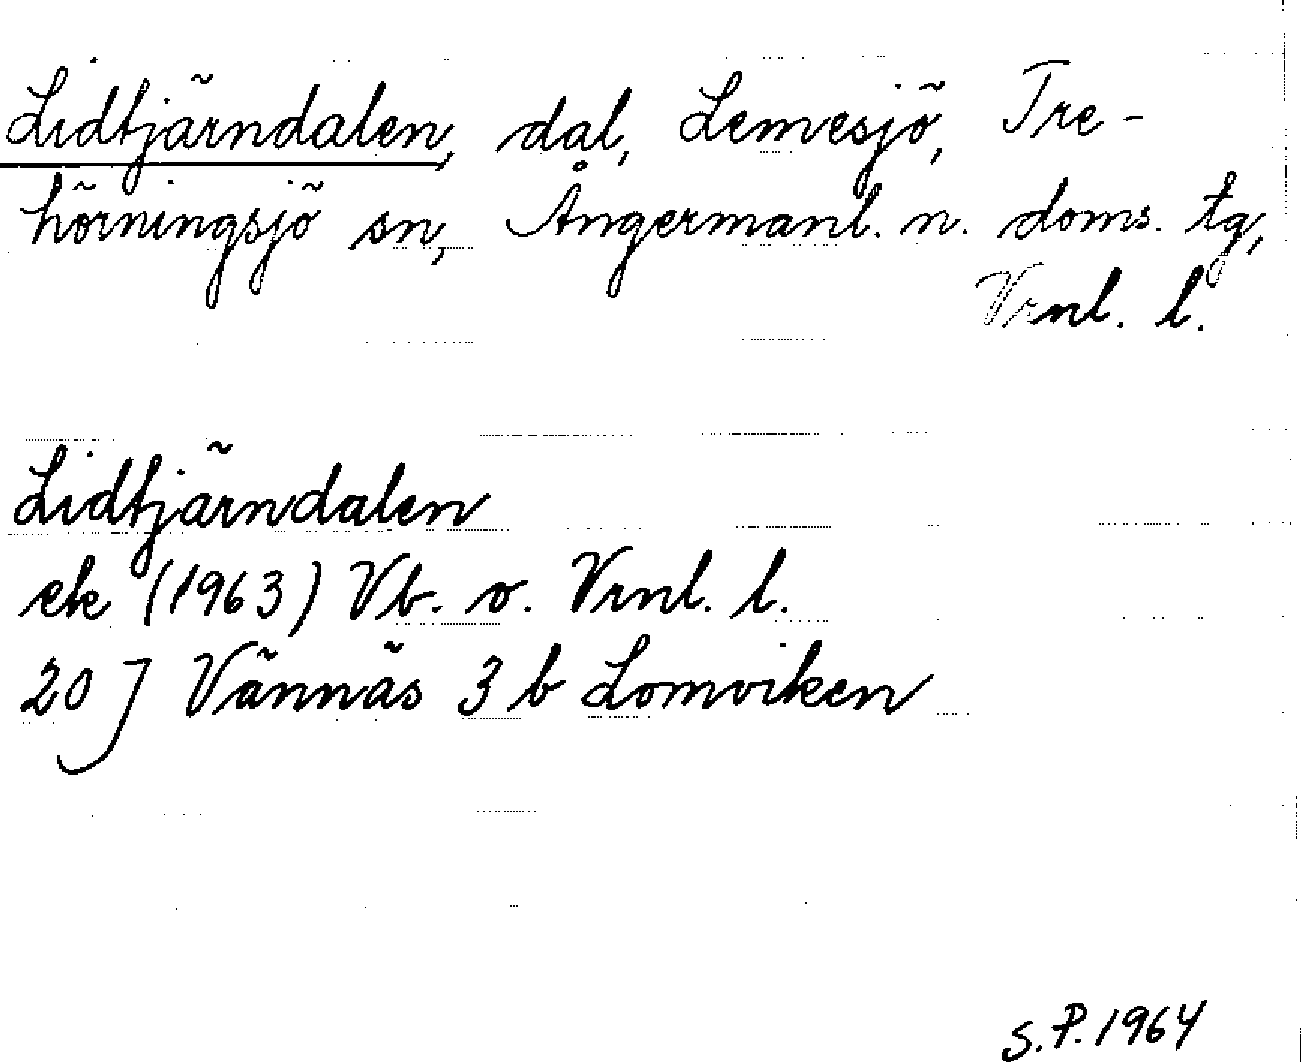 Lidtjärndalen, dal, Lemesjö, Tre-
hörningsjö sn, Ångermanl. n. doms. tg,
Vrnl. l.
Lidtjärndalen
ek (1963) Vb. o. Vrnl. l.
20 J Vännäs 3 b Lomviken
S.P. 1964